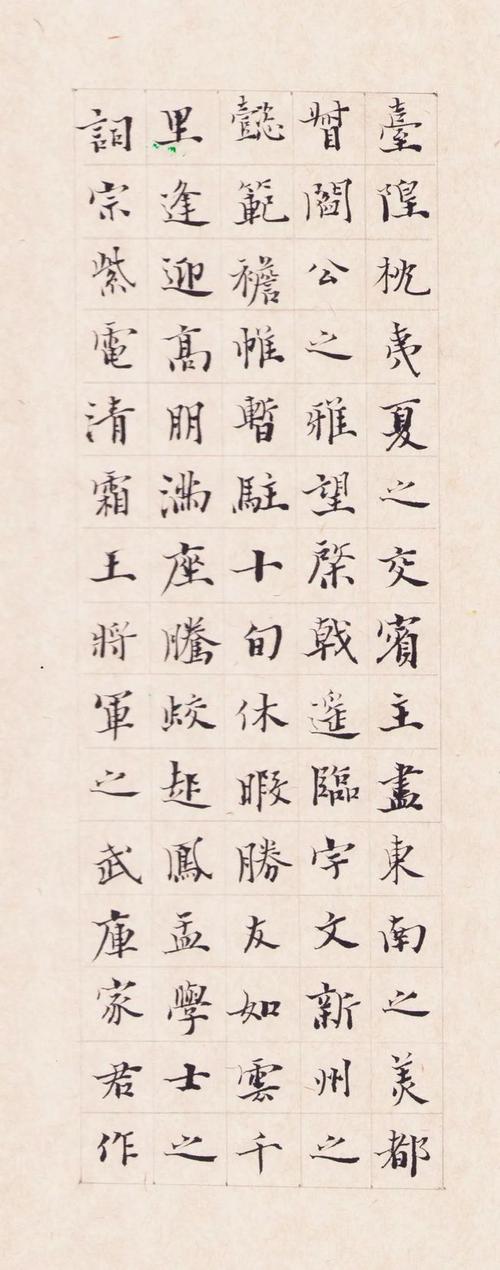 臺隍枕夷夏之交賓主盡東南之美都
督閻公之雅望棨戟遥臨宇文新州之
懿範襜帷暫駐十旬休暇勝友如雲千
里逢迎高朋滿座騰蛟起鳳孟學士之
詞宗紫電清霜王將軍之武庫家君作